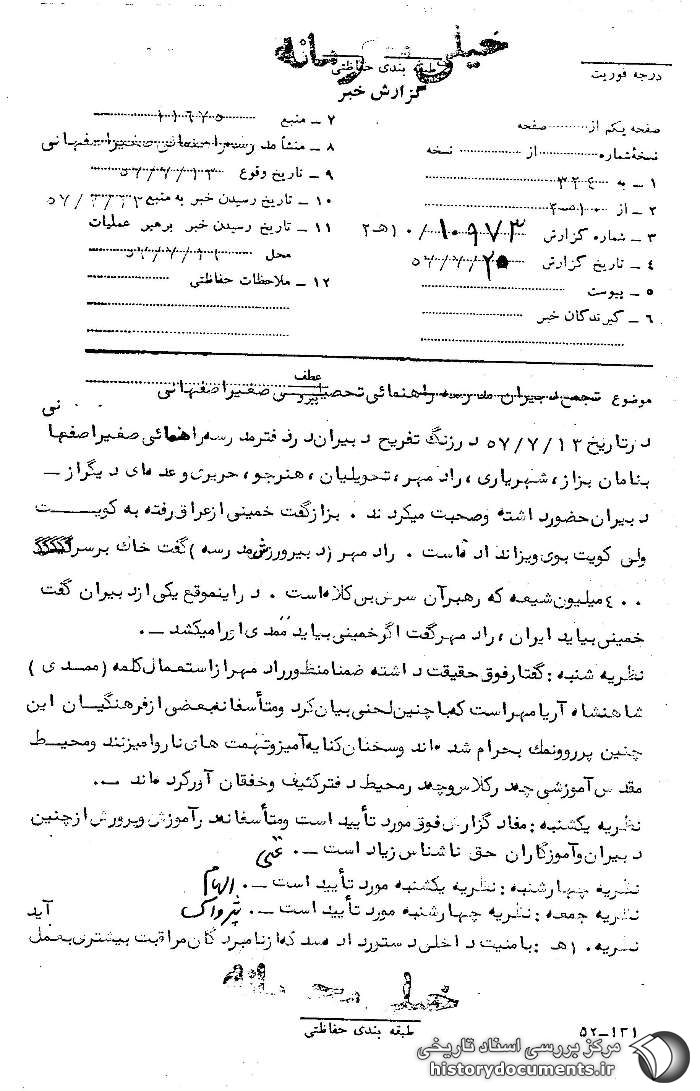 خیلی محرمانه
طبقه بندی حفاظتی
درجه فوریت
گزارش خبر
صفحه یکم از صفحه
نسخه شماره از نسخه
۱ ـ به ۳۲۴
۲ ـ از ۱۰هـ۲
۳ ـ شماره گزارش ۱۰۹۷۳ /۱۰هـ۲
۴ ـ تاریخ گزارش ۵۷/۷/۲۰
۵ ـ پیوست
۶ ـ گیرندگان خبر
۷ ـ منبع ۱۱۶۷۵
۸ ـ منشأ مدرسه راهنمائی صغیر اصفهانی
۹ ـ تاریخ وقوع ۵۷/۷/۱۳
۱۰ ـ تاریخ رسیدن خبر به منبع
۱۱ ـ تاریخ رسیدن خبر برهبر عملیات
محل
۱۲ ـ ملاحظات حفاظتی
موضوع تجمع دبیران مدرسه راهنمائی تحصیلی صغیر اصفهانی
عطف
پیروی
در تاریخ ۵۷/۷/۱۳ در زنگ تفریح دبیران در دفتر مدرسه راهنمائی صغیر اصفهانی
بنامان بزاز، شهریاری، راد مهر، تحویلیان، هنرجو، حریری و عده ای دیگر از ـ
دبیران حضور داشته وصحبت میکردند . بزاز گفت خمینی از عراق رفته به کویت
ولی کویت بوی ویزا نداده است . راد مهر (دبیر ورزش مدرسه) گفت خاک بر سر
۴۰۰ میلیون شیعه که رهبر آن سرش بی کلاه است . در اینموقع یکی از دبیران گفت
خمینی بیاید ایران، راد مهر گفت اگر خمینی بیاید ممدی اورا میکشد ـ.
نظریه شنبه : گفتار فوق حقیقت داشته ضمنا منظور راد مهر از استعمال کلمه (ممدی)
شاهنشاه آریا مهر است که با چنین لحنی بیان کرد ومتأسفانه بعضی از فرهنگیان این
چنین پررو ونمک بحرام شده اند وسخنان کنایه آمیز وتهمت های ناروا میزنند ومحیط
مقدس آموزشی چه در کلاس وچه در محیط دفتر کثیف وخفقان آور کرده اند ـ.
نظریه یکشنبه : مفاد گزارش فوق مورد تأیید است ومتأسفانه در آموزش وپرورش از چنین
دبیران وآموزگاران حق ناشناس زیاد است ـ.
نظریه چهارشنبه : نظریه یکشنبه مورد تأیید است ـ. الهام
نظریه جمعه : نظریه چهارشنبه مورد تأیید است ـ. پژواک
نظریه ۱۰هـ : بامنیت داخلی دستور داده شد که از نامبردگان مراقبت بیشتری بعمل آید
خیلی محرمانه
طبقه بندی حفاظتی
۵۲ـ۱۳۱
مرکز بررسی اسناد تاریخی
historydocuments.ir